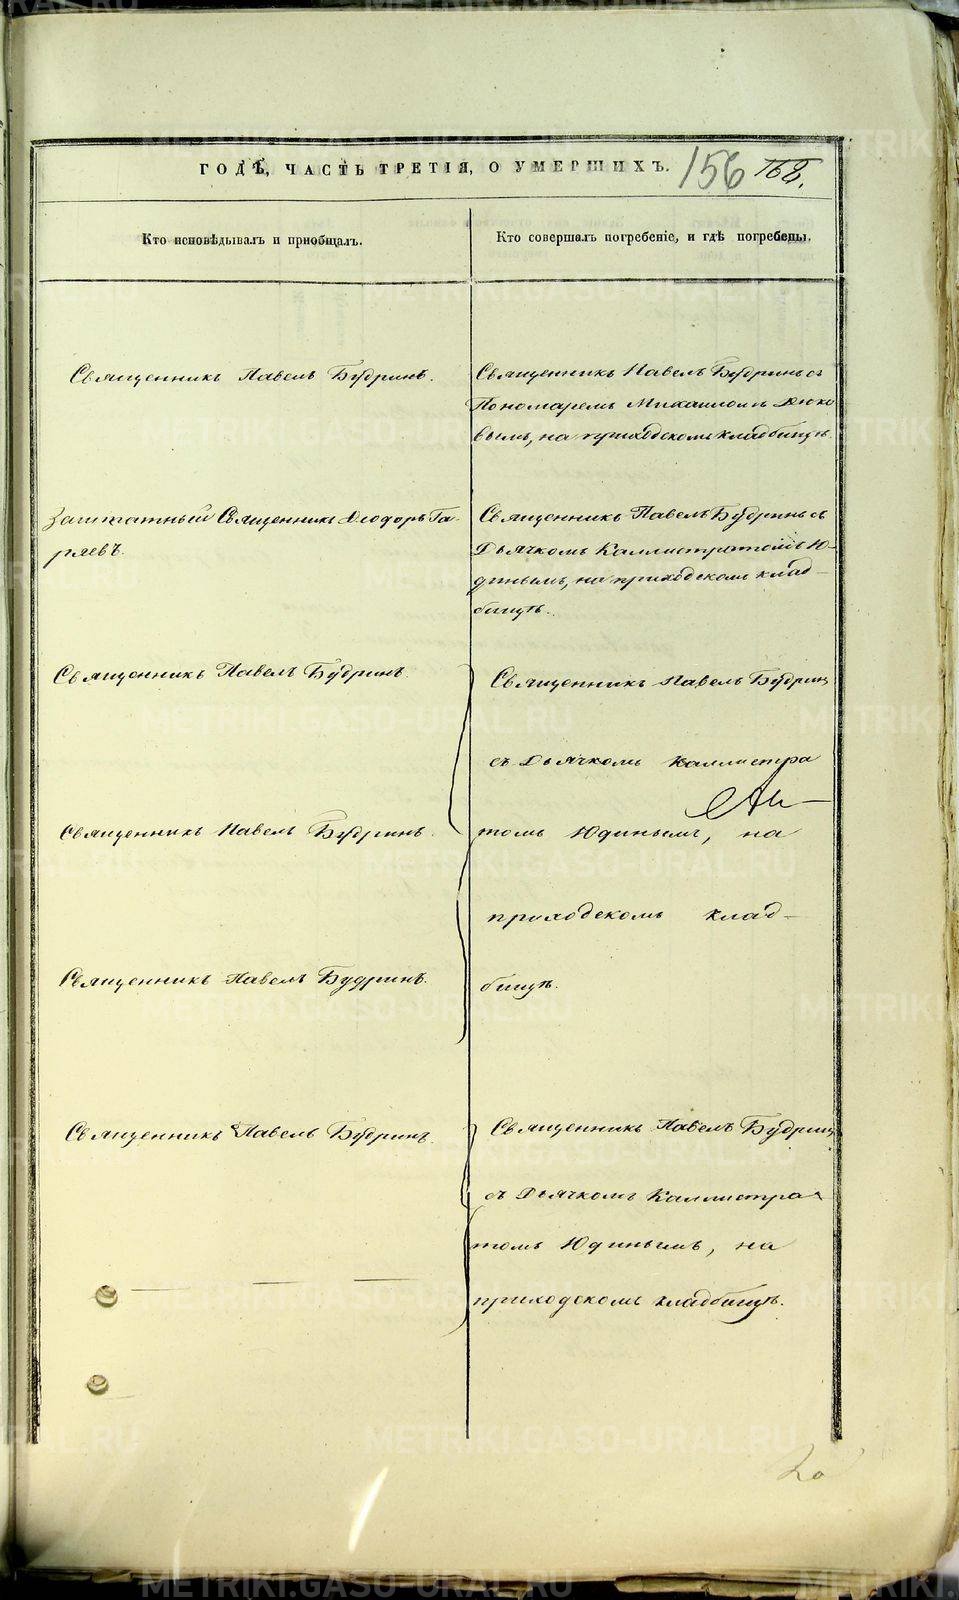 ГОДѢ, ЧАСТЬ ТРЕТІЯ, О УМЕРШИХЪ. 156 168.
Кто исповѣдывалъ и пріобщалъ.
Кто совершалъ погребеніе, и гдѣ погребены.
Священникъ Павелъ Будринъ.
Священникъ Павелъ Будринъ съ
Пономаремъ Михаиломъ Дюко
вымъ, на приходскомъ кладбищѣ.
Заштатный Священникъ Ѳеодоръ Га-
ряевъ.
Священникъ Павелъ Будринъ съ
Дьячкомъ Каллистратомъ Ю-
динымъ, на приходскомъ клад-
бищѣ.
Священникъ Павелъ Будринъ.
Священникъ Павелъ Будрин
съ Дьячкомъ Каллистра
Священникъ Павелъ Будринъ.
томъ Юдинымъ, на
приходскомъ клад-
Священникъ Павелъ Будринъ.
бищѣ.
Священникъ Павелъ Будринъ.
Священникъ Павелъ Будрин
съ Дьячкомъ Каллистра
томъ Юдинымъ, на
приходскомъ кладбищѣ.
METRIKI.GASO-URAL.RU